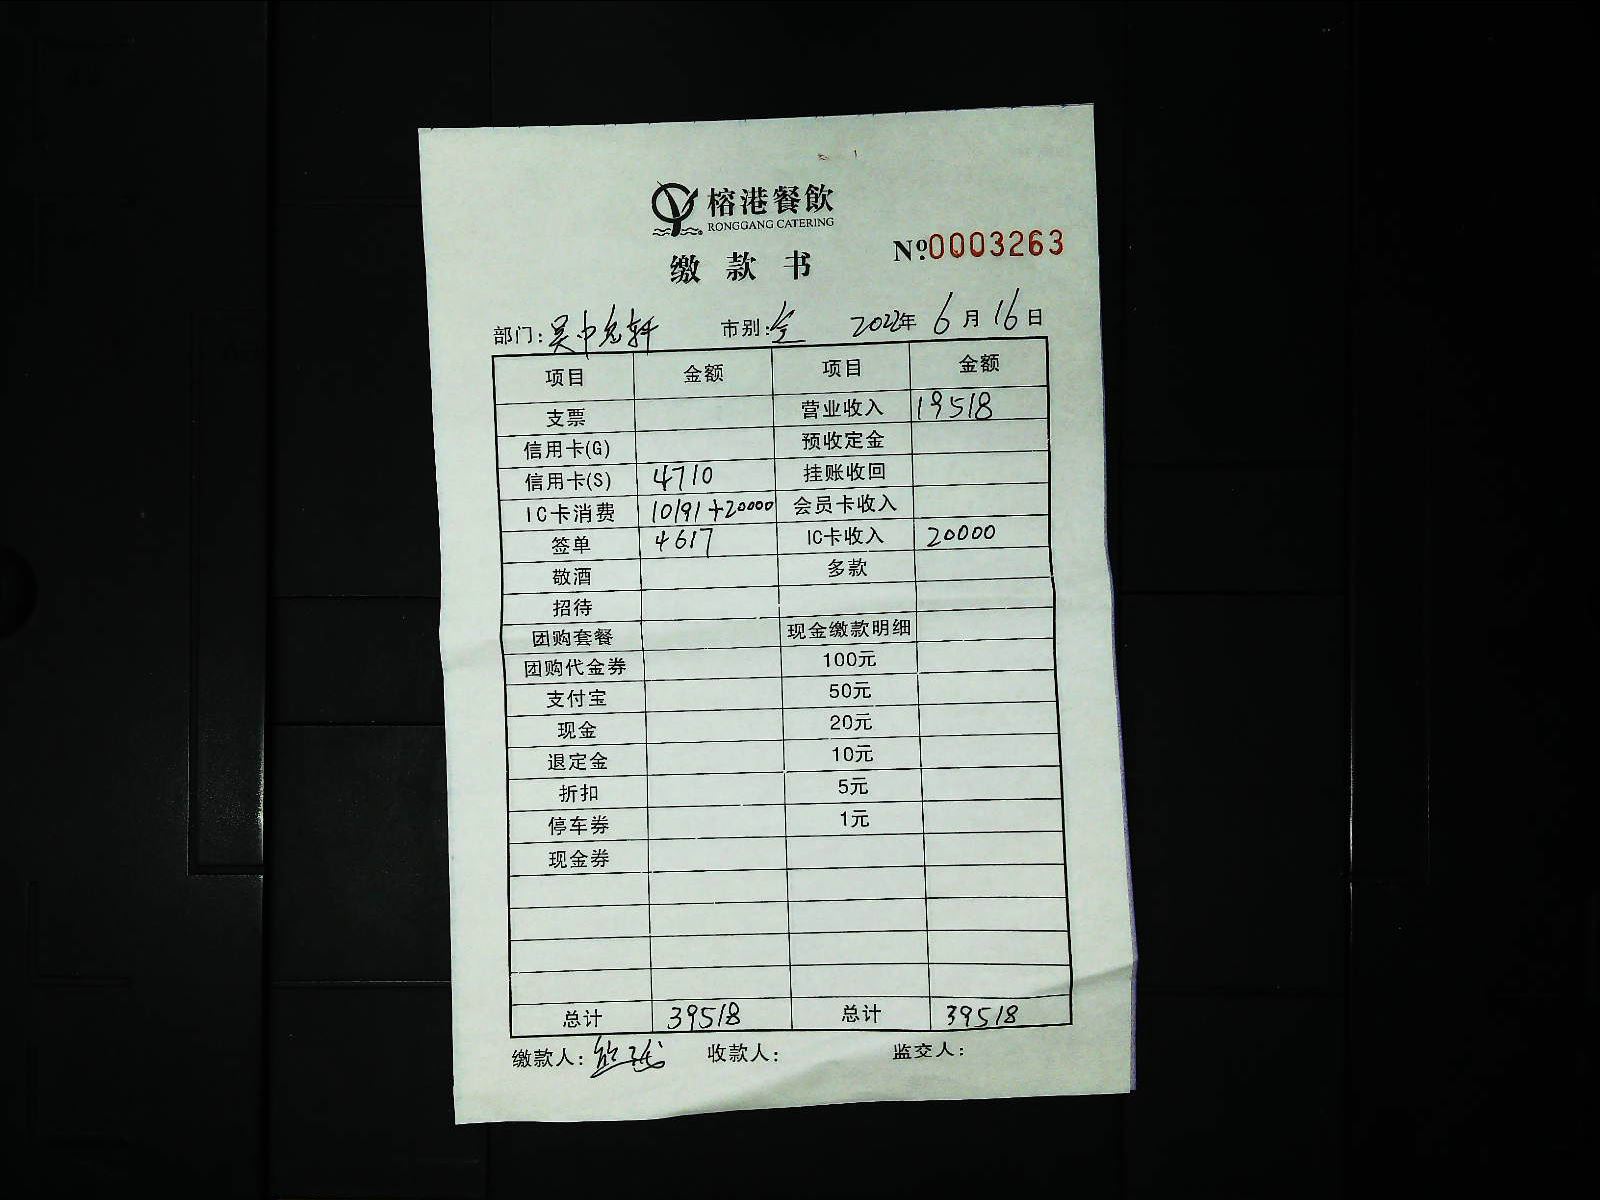 榕港餐飲
RONGGANG CATERING
缴款书
№0003263
部门：吴中 轩 市别：全 2022年6月16日
项目 金额 项目 金额
支票 营业收入 19518
信用卡(G) 预收定金
信用卡(S) 4710 挂账收回
IC卡消费 10191+20000 会员卡收入
签单 4617 IC卡收入 20000
敬酒 多款
招待
团购套餐 现金缴款明细
团购代金券 100元
支付宝 50元
现金 20元
退定金 10元
折扣 5元
停车券 1元
现金券
总计 39518 总计 39518
缴款人： 收款人： 监交人：